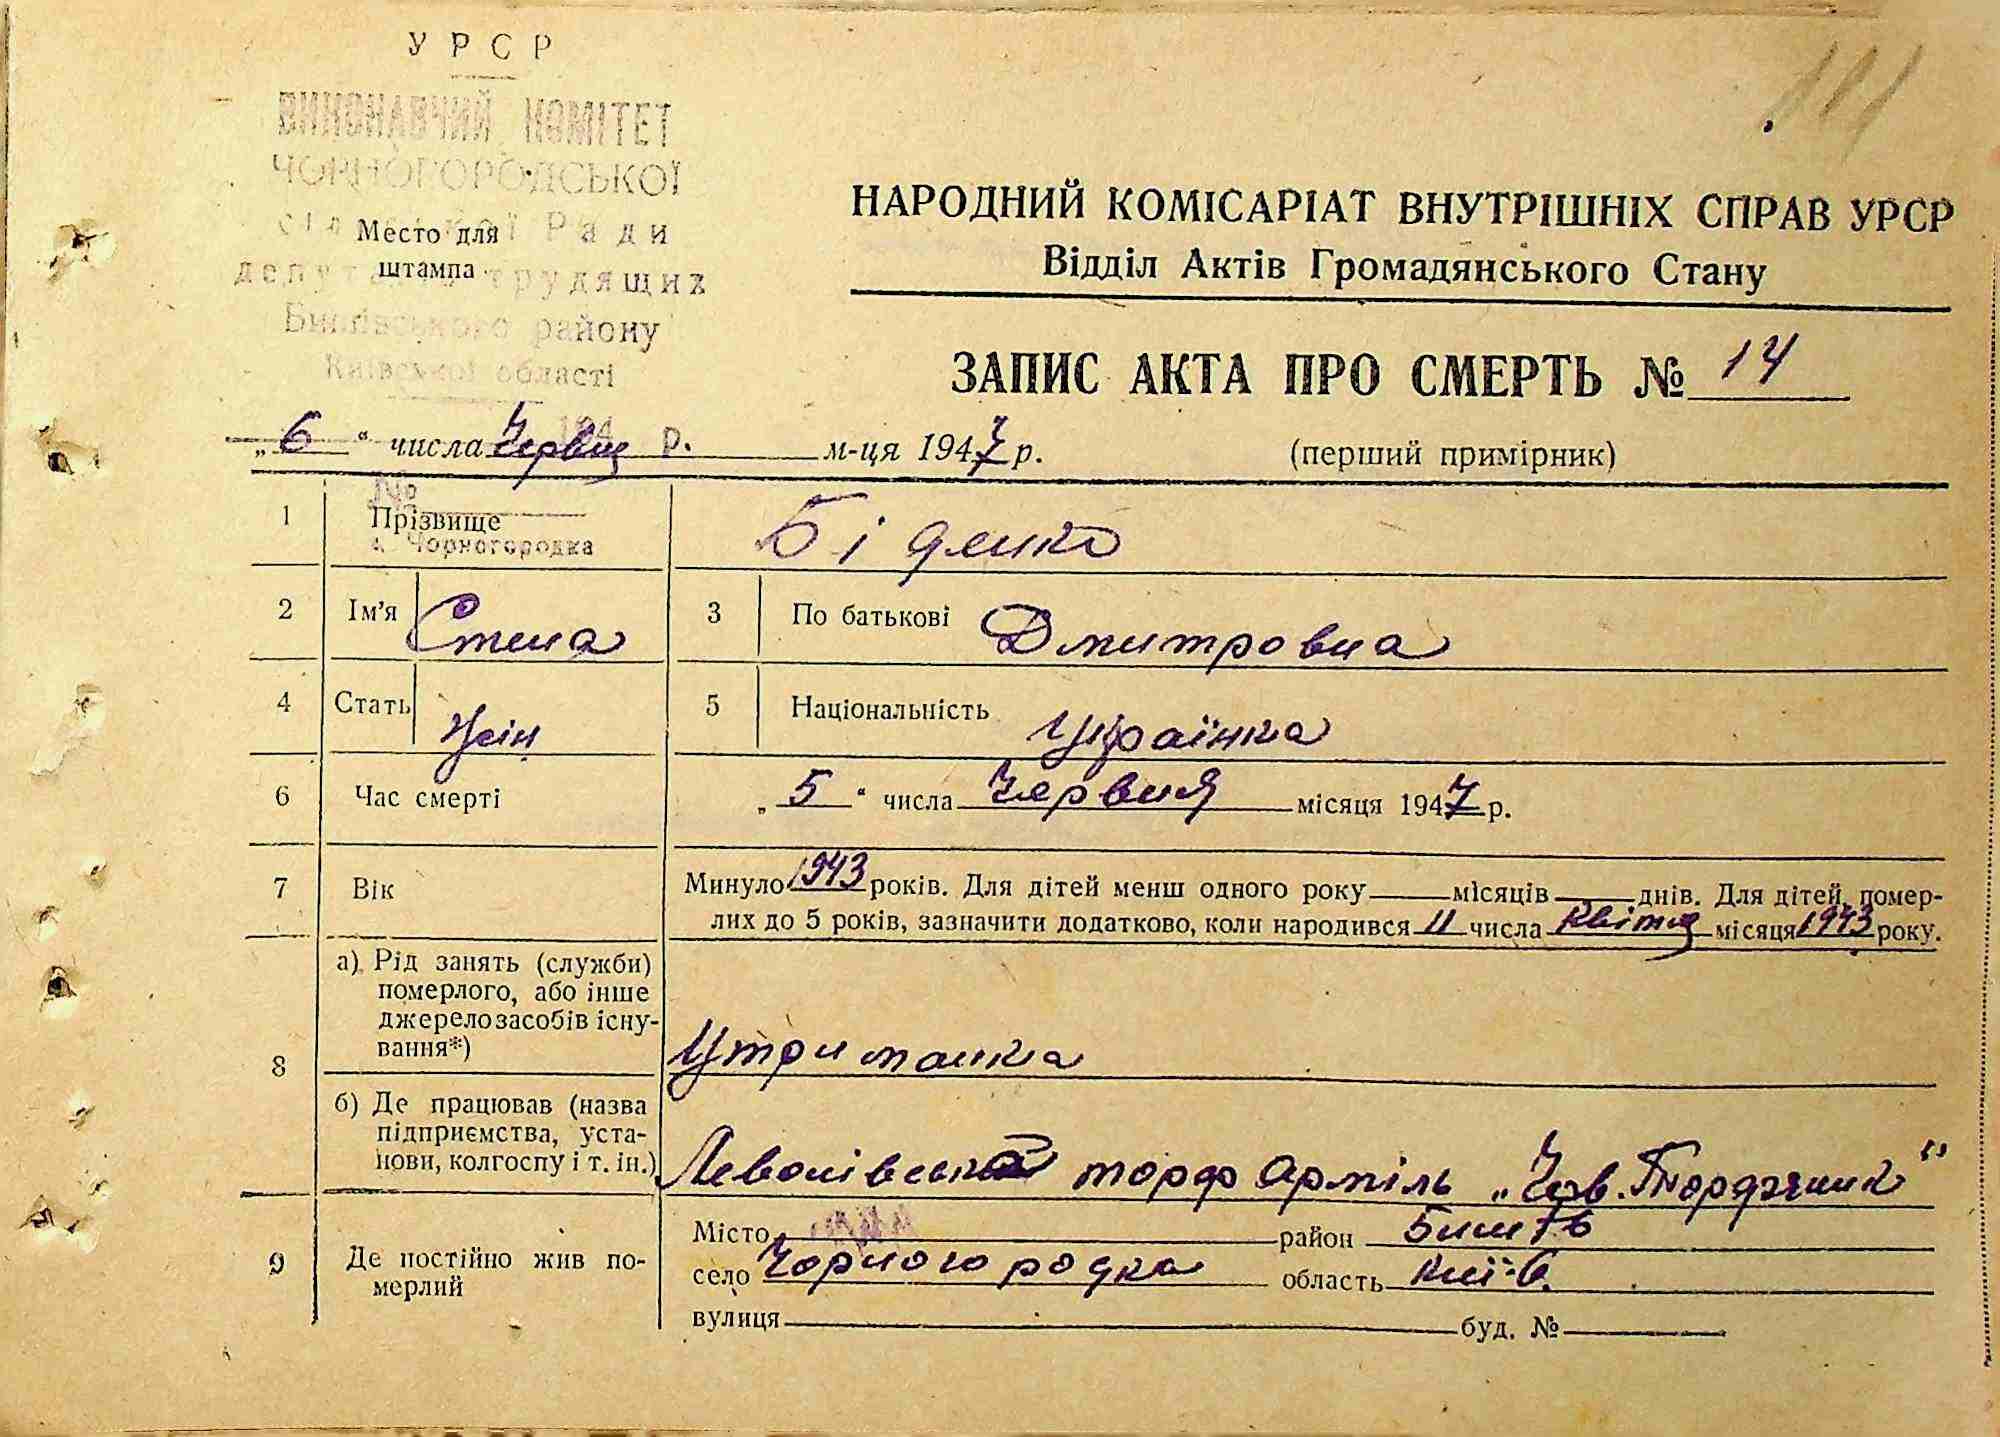 УРСР
ВИКОНАВЧИЙ КОМІТЕТ
ЧОРНОГОРОДСЬКОЇ
сільської Ради
депутатів трудящих
Бишівського району
Київської області
Место для
штампа
194 р.
№
с. Чорногородка
111
НАРОДНИЙ КОМІСАРІАТ ВНУТРІШНІХ СПРАВ УРСР
Відділ Актів Громадянського Стану
ЗАПИС АКТА ПРО СМЕРТЬ № 14
„6“ числа Червня м-ця 1947 р. (перший примірник)
1 Прізвище Бі денко
2 Ім'я 3 По батькові Дмитровна
4 Стать жін 5 Національність Українка
6 Час смерті „5“ числа Червня місяця 1947 р.
7 Вік Минуло 1943 років. Для дітей менш одного року місяців днів. Для дітей, помер-
лих до 5 років, зазначити додатково, коли народився 11 числа Квітня місяця 1943 року.
8 а) Рід занять (служби)
померлого, або інше
джерело засобів існу-
вання*) Утриманка
б) Де працював (назва
підприємства, уста-
нови, колгоспу і т. ін.) торф Артіль „Чов. Торфяник"
9 Де постійно жив по-
мерлий
Місто район Бишів
село Чорногородка область Київ.
вулиця буд. №